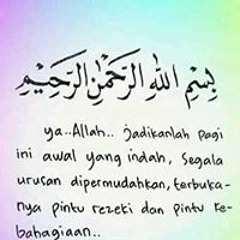 بِسْمِ اللهِ الرَّحْمٰنِ الرَّحِيْمِ
ya..Allah.. jadikanlah pagi
ini awal yang indah, segala
urusan dipermudahkan, terbuka-
nya pintu rezeki dan pintu ke-
bahagiaan..